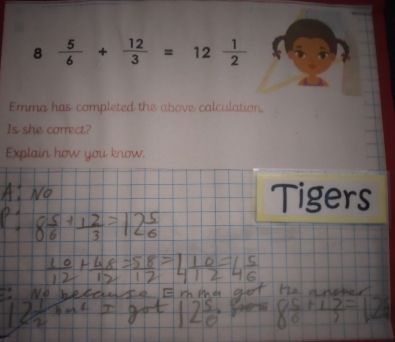 8 5/6 + 12/3 = 12 1/2
Emma has completed the above calculation.
Is she correct?
Explain how you know.
Tigers
A: No
P: 8 5/6 + 12/3 = 12 5/6
10/12 + 48/12 = 58/12 = 4 10/12 = 4 5/6
E: No because Emma got the answer
12 1/2 but I got 12 5/6 8 5/6 + 12/3 = 12